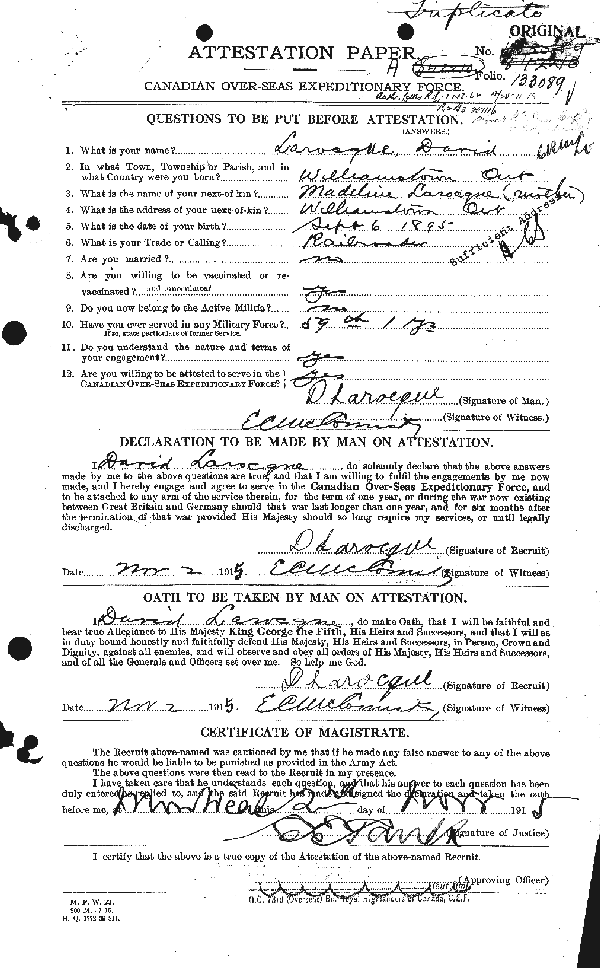 Triplicate
ORIGINAL
ATTESTATION PAPER.
No.
A
Folio.
133089
CANADIAN OVER-SEAS EXPEDITIONARY FORCE.
QUESTIONS TO BE PUT BEFORE ATTESTATION.
(ANSWERS)
1. What is your name? Larocque, David
2. In what Town, Township or Parish, and in
what Country were you born? Williamstown Ont
3. What is the name of your next-of-kin? Madeline Larocque (mother)
4. What is the address of your next-of-kin? Williamstown Ont
Sufficient Address
5. What is the date of your birth? Sept 6 1895
6. What is your Trade or Calling? Railroader
7. Are you married? no
8. Are you willing to be vaccinated or re-
vaccinated? and inoculated Yes
9. Do you now belong to the Active Militia? no
10. Have you ever served in any Military Force? 59th 1 yr
If so, state particulars of former Service.
11. Do you understand the nature and terms of
your engagement? Yes
12. Are you willing to be attested to serve in the
CANADIAN OVER-SEAS EXPEDITIONARY FORCE? Yes
D Larocque (Signature of Man.)
(Signature of Witness.)
DECLARATION TO BE MADE BY MAN ON ATTESTATION.
I, David Larocque, do solemnly declare that the above answers
made by me to the above questions are true, and that I am willing to fulfil the engagements by me now
made, and I hereby engage and agree to serve in the Canadian Over-Seas Expeditionary Force, and
to be attached to any arm of the service therein, for the term of one year, or during the war now existing
between Great Britain and Germany should that war last longer than one year, and for six months after
the termination of that war provided His Majesty should so long require my services, or until legally
discharged.
D Larocque (Signature of Recruit)
Date Nov 2 1915 (Signature of Witness)
OATH TO BE TAKEN BY MAN ON ATTESTATION.
I, David Larocque, do make Oath, that I will be faithful and
bear true Allegiance to His Majesty King George the Fifth, His Heirs and Successors, and that I will as
in duty bound honestly and faithfully defend His Majesty, His Heirs and Successors, in Person, Crown and
Dignity, against all enemies, and will observe and obey all orders of His Majesty, His Heirs and Successors,
and of all the Generals and Officers set over me. So help me God.
D Larocque (Signature of Recruit)
Date Nov 2 1915 (Signature of Witness)
CERTIFICATE OF MAGISTRATE.
The Recruit above-named was cautioned by me that if he made any false answer to any of the above
questions he would be liable to be punished as provided in the Army Act.
The above questions were then read to the Recruit in my presence.
I have taken care that he understands each question, and that his answer to each question has been
duly entered as replied to, and the said Recruit has made and signed the declaration and taken the oath
before me, at Montreal this 2 day of Nov 1915
(Signature of Justice)
I certify that the above is a true copy of the Attestation of the above-named Recruit.
(Approving Officer)
O.C. 73rd (Overseas) Bn. Royal Highlanders of Canada, C.E.F.
M. F. W. 23.
H. Q. 1772-39-241.